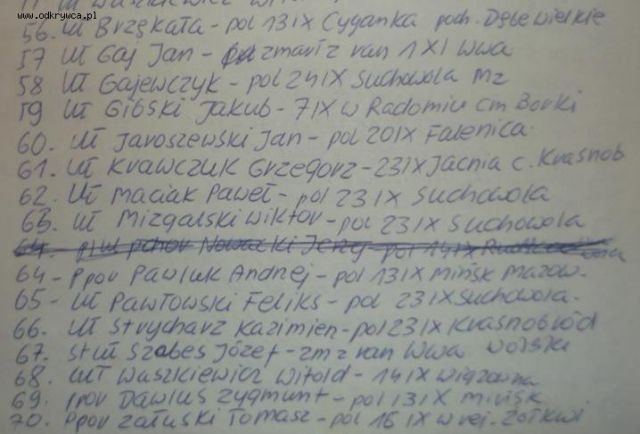 www.odkrywca.pl
56. Uł Brzękała - pol 13 IX Cyganka poch. Dębe Wielkie
57 Uł Gaj Jan - zmarł z ran 1 XI Wwa
58 Uł Gajewczyk - pol 24 IX Suchowola Mz
59 Uł Gibski Jakub - 7 IX w Radomiu cm Borki
60. Uł Jaroszewski Jan - pol 20 IX Falenica
61. Uł Krawczuk Grzegorz - 23 IX Jacnia c. Krasnob
62. Uł Maciak Paweł - pol 23 IX Suchowola
63. Uł Mizgalski Wiktor - pol 23 IX Suchowola
64. pchor Nowacki Jerzy - pol 14 IX
64 - Ppor Pawluk Andrzej - pol 13 IX Mińsk Mazow.
65 - Uł Pawłowski Feliks - pol 23 IX Suchowola.
66. Uł Strycharz Kazimierz - pol 23 IX Krasnobród
67. st uł Szabes Józef - zm z ran Wwa wolski
68. Uł Waszkiewicz Witold - 14 IX Wiązowna
69. ppor Dawius Zygmunt - pol 13 IX Mińsk
70. Ppor Załuski Tomasz - pol 16 IX w rej. Żółkwi